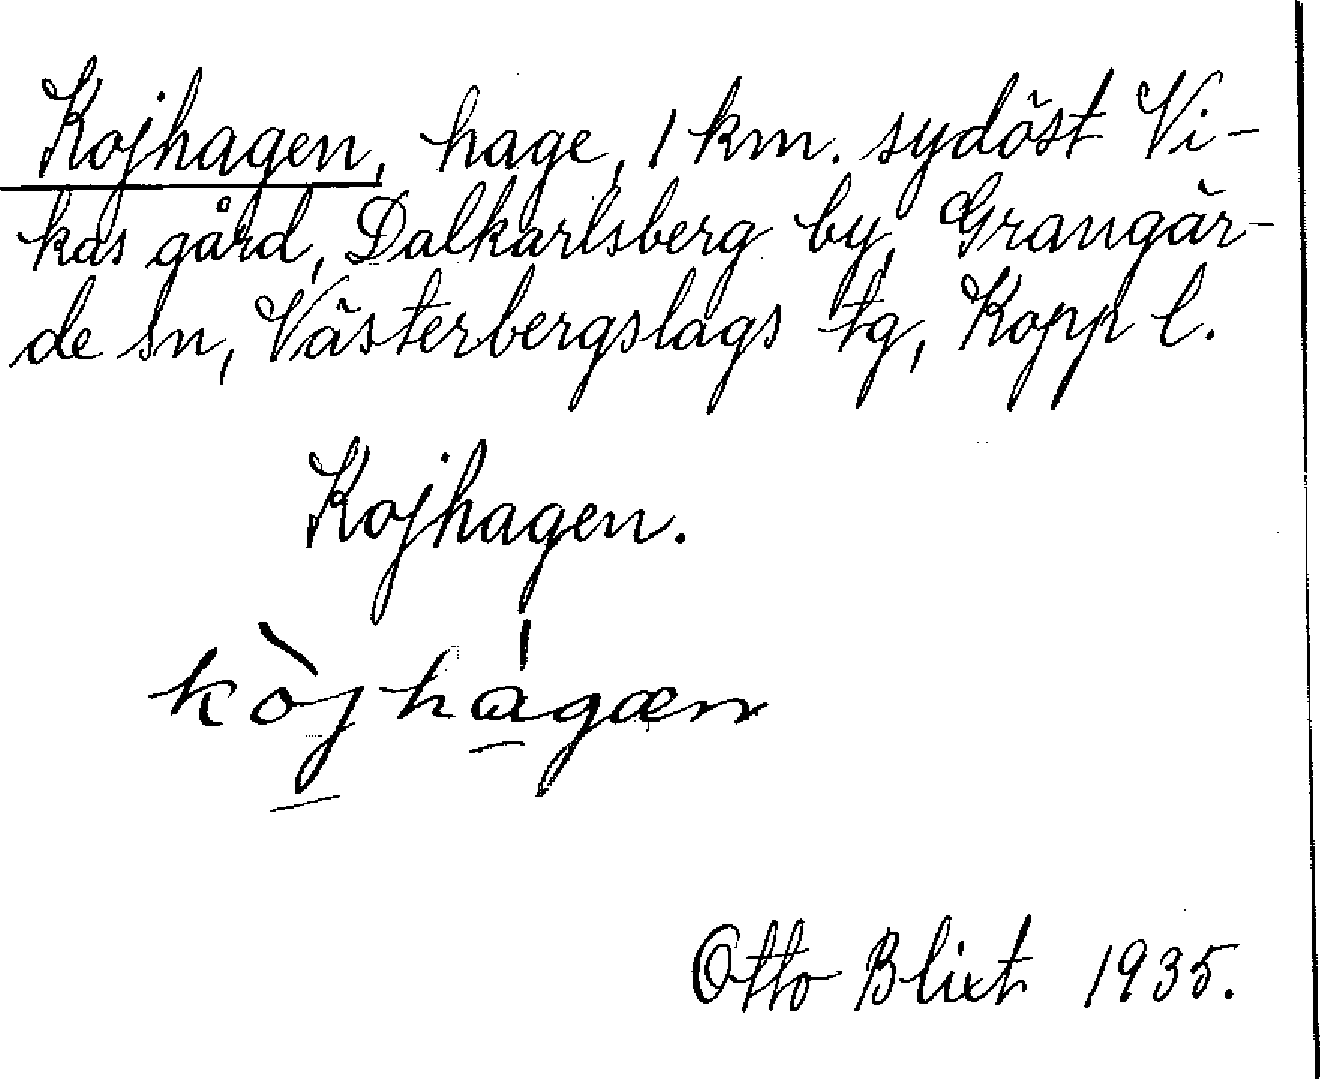 Kojhagen, hage, 1 km. sydöst Vi-
kas gård, Dalkarlsberg by, Grangär-
de sn, Västerbergslags tg, Kopp l.
Kojhagen.
kòjhágæn
Otto Blixt 1935.